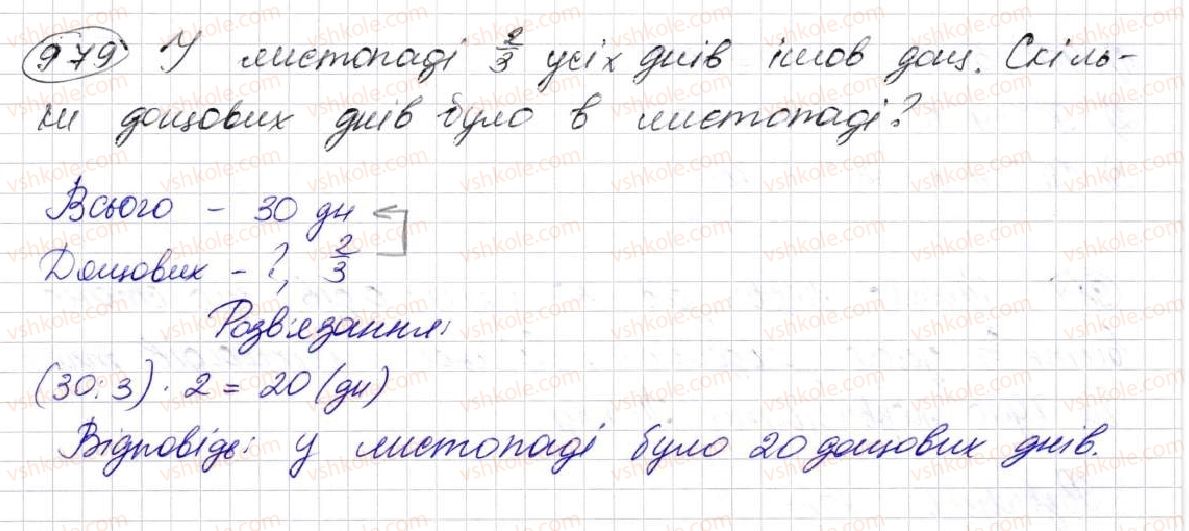 979 У листопаді 2/3 усіх днів ішов дощ. Скіль-
ки дощових днів було в листопаді?
Всього - 30 дн
Дощових - ?, 2/3
Розв'язання:
(30:3) · 2 = 20 (дн)
Відповідь: у листопаді було 20 дощових днів.